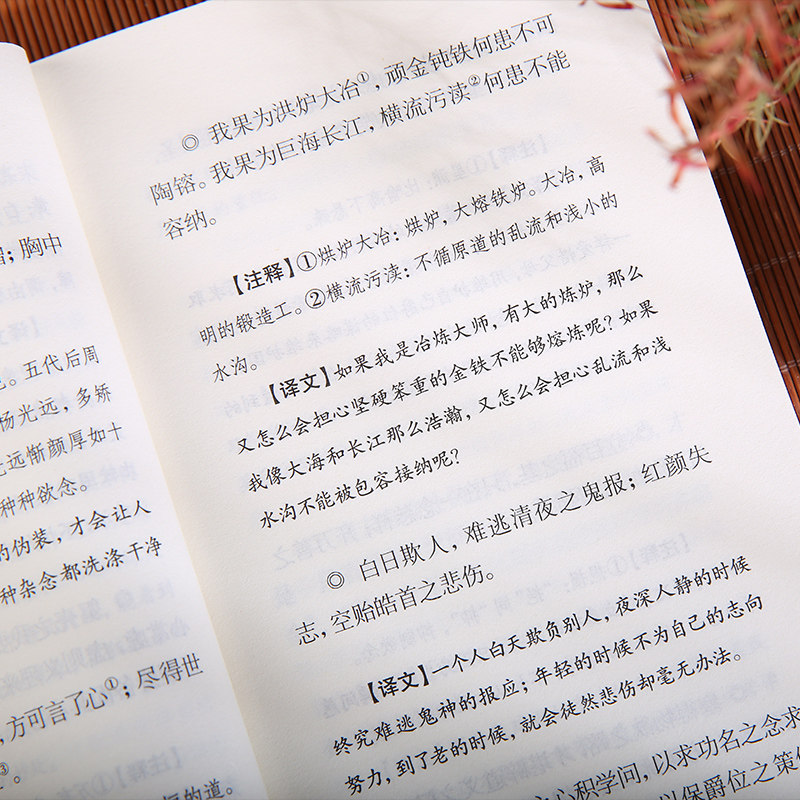 胸中
。五代后周
杨光远，多矫
光远惭颜厚如十
种种欲念。
的伪装，才会让人
种杂念都洗涤干净
方可言了心①；尽得世
③。
◎ 我果为洪炉大冶①，顽金钝铁何患不可
陶镕。我果为巨海长江，横流污渎②何患不能
容纳。
【注释】①烘炉大冶：烘炉，大熔铁炉。大冶，高
明的锻造工。②横流污渎：不循原道的乱流和浅小的
水沟。
【译文】如果我是冶炼大师，有大的炼炉，那么
又怎么会担心坚硬笨重的金铁不能够熔炼呢？如果
我像大海和长江那么浩瀚，又怎么会担心乱流和浅
水沟不能被包容接纳呢？
◎ 白日欺人，难逃清夜之鬼报；红颜失
志，空贻皓首之悲伤。
【译文】一个人白天欺负别人，夜深人静的时候
终究难逃鬼神的报应；年轻的时候不为自己的志向
努力，到了老的时候，就会徒然悲伤却毫无办法。
心积学问，以求功名之念求
以保爵位之策